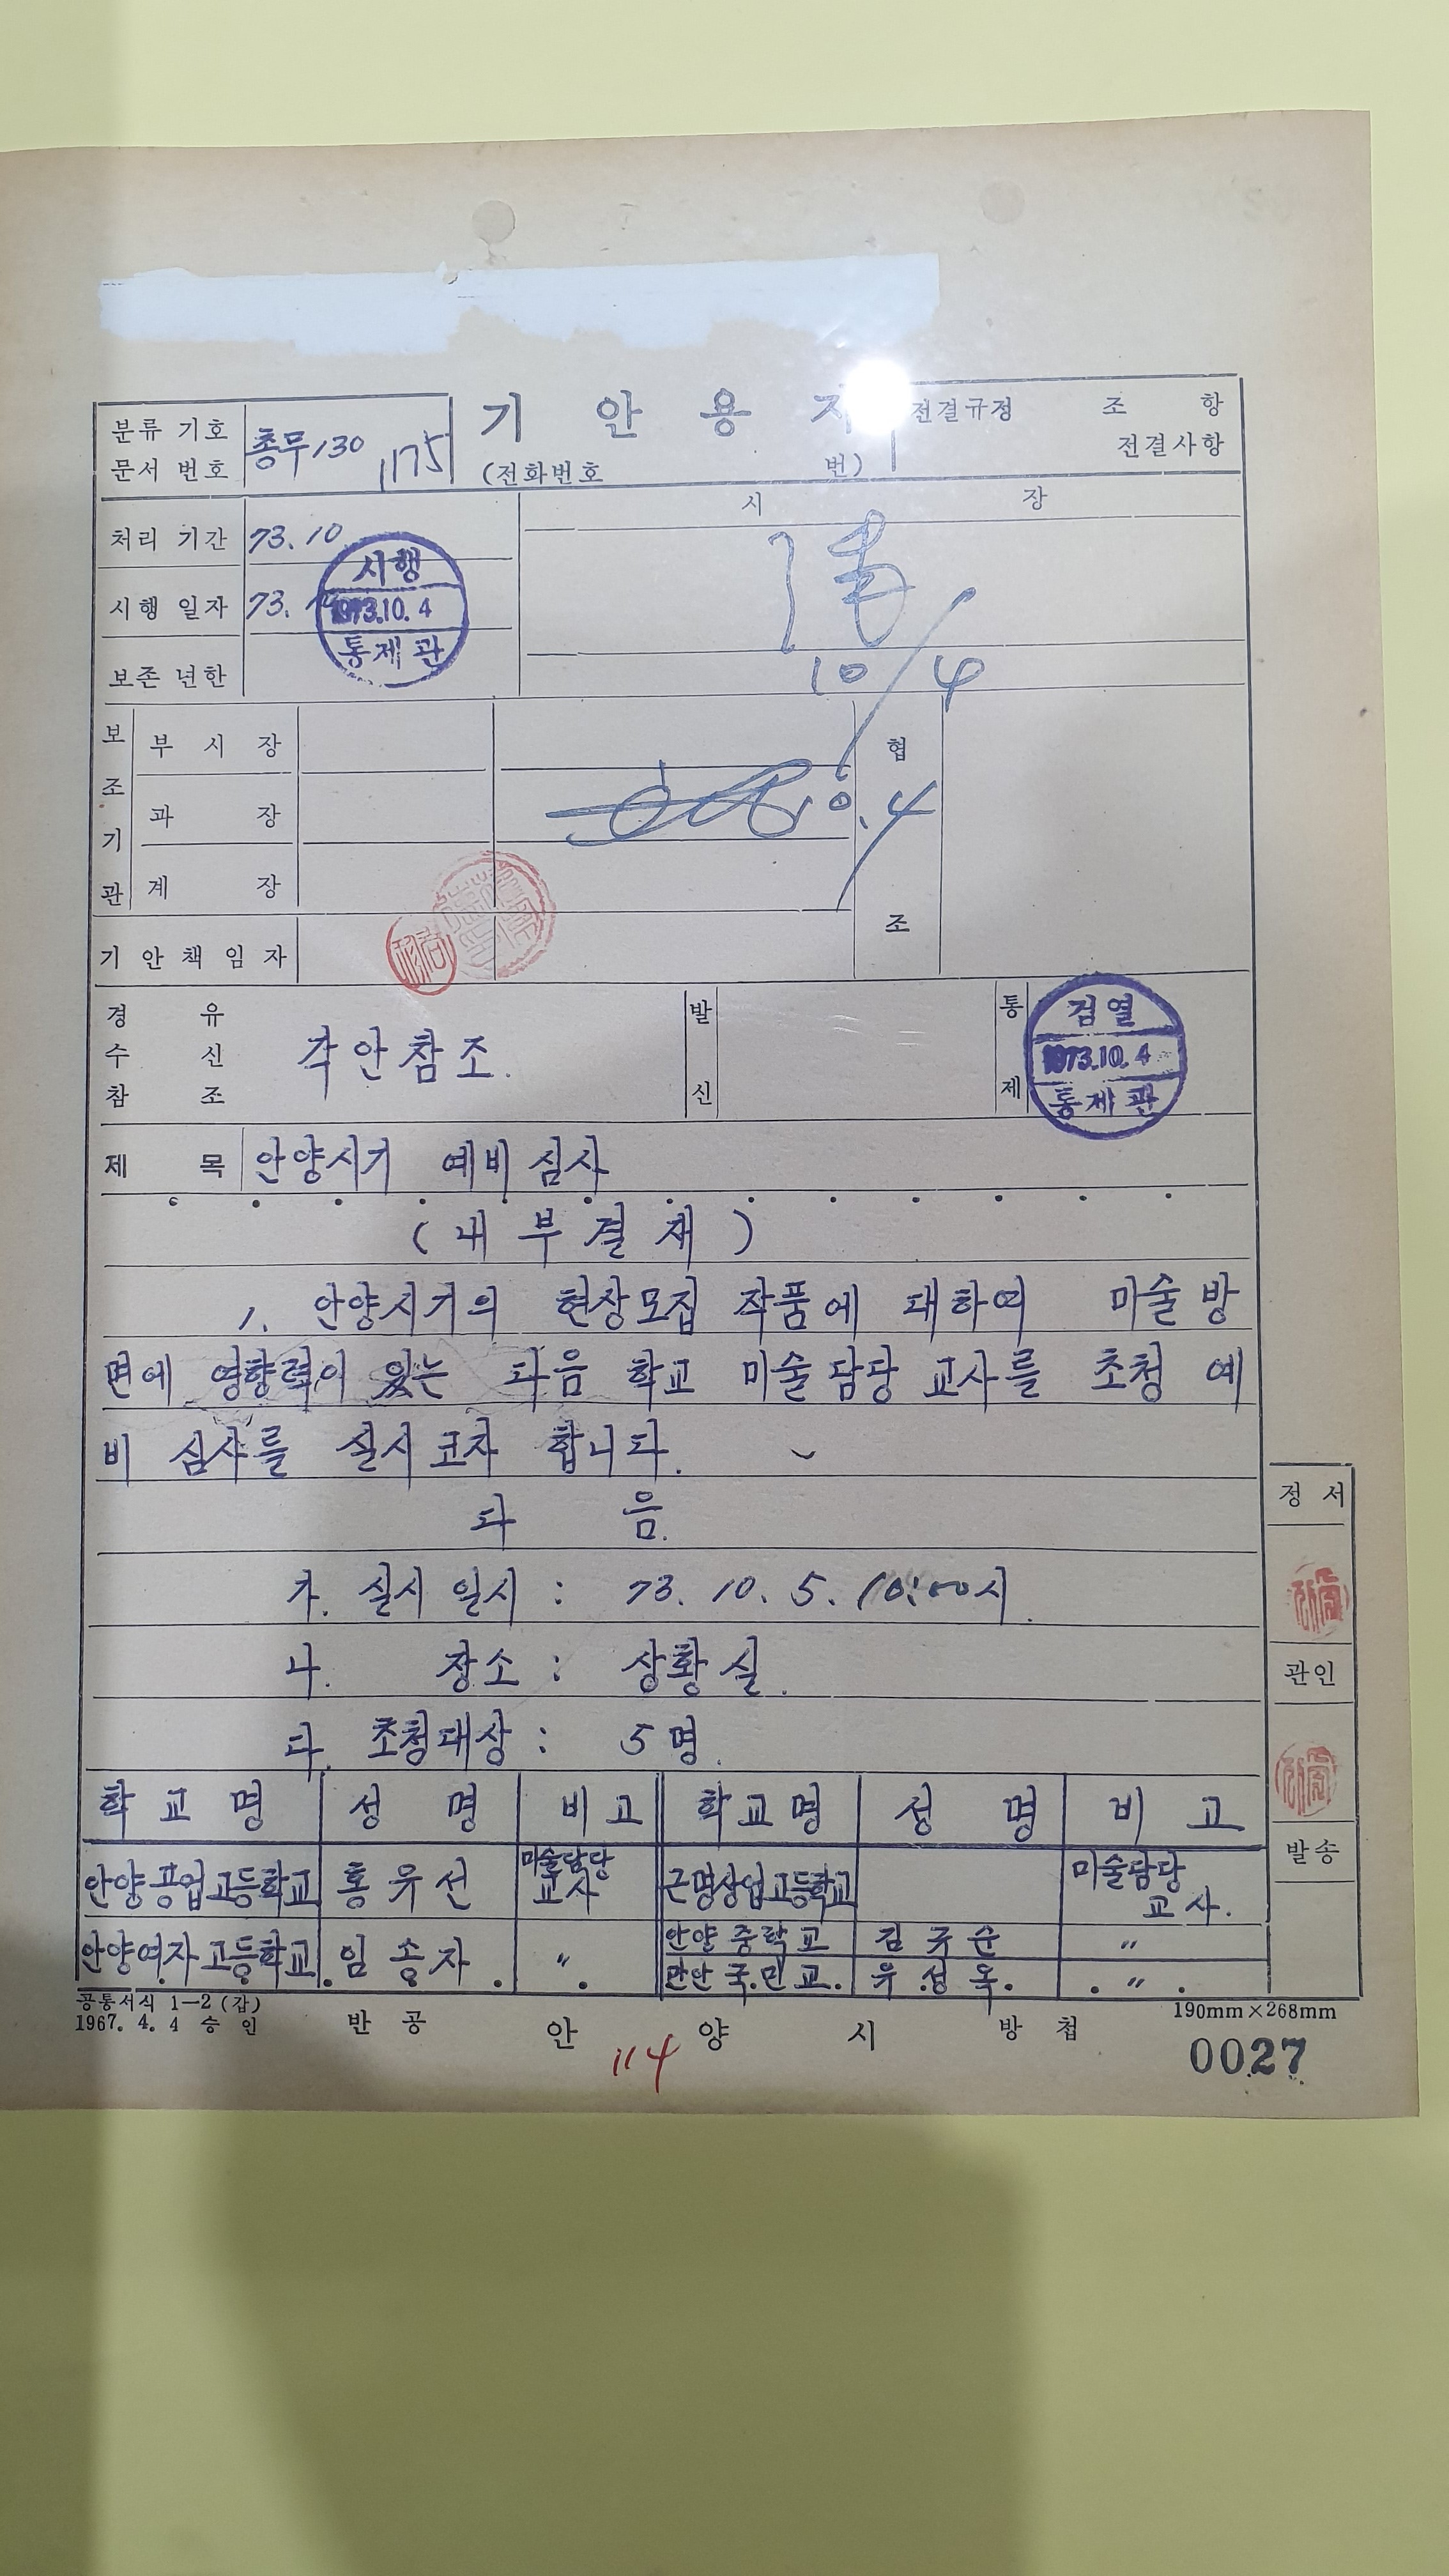 분류 기호
문서 번호
총무130
1175
기 안 용 지
(전화번호 번)
전결규정 조 항
전결사항
처리 기간 73. 10
시 장
시행 일자 73.
시행
1973.10. 4
통제관
보존 년한
10/4
보 조 기 관
부 시 장
과 장
10.4
계 장
협 조
기 안 책 임 자
경 유
수 신
참 조
각안참조.
발 신
통 제
검열
1973.10. 4
통제관
제 목 안양시기 예비 심사
( 내 부 결 재 )
1. 안양시기의 현상모집 작품에 대하여 미술방
면에 영향력이 있는 다음 학교 미술담당 교사를 초청 예
비 심사를 실시코자 합니다.
다 음.
가. 실시 일시 : 73. 10. 5. 10:00시.
나. 장소 : 상황실.
다. 초청대상 : 5명.
학 교 명 성 명 비 고 학 교 명 성 명 비 고
안양공업고등학교 홍유선 미술담당 교사 근명상업고등학교 미술담당 교사.
안양여자고등학교. 임송자. 〃. 안양중학교 김규순 〃
만안국민교. 우성옥. 〃.
정 서
관인
발송
공통서식 1—2 (갑)
1967. 4. 4 승 인
반 공 안 양 시 방 첩
190mm×268mm
114
0027